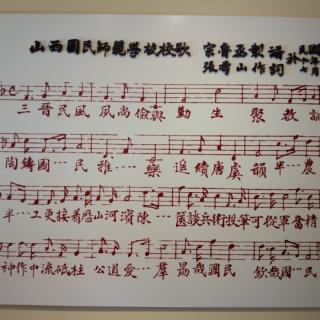 山西國民師範學校校歌 宗魯丞製譜 民國
張秀山作詞 於十年七月
三晉民風夙尚儉與勤生聚教訓
陶鑄國⋯民雅⋯⋯樂遥續唐虞韻半⋯農
半⋯工更接着歷山河濱陳⋯⋯篋談兵術投筆可從軍奮精
神作中流砥柱公道愛⋯羣勗哉國民欽哉國⋯民